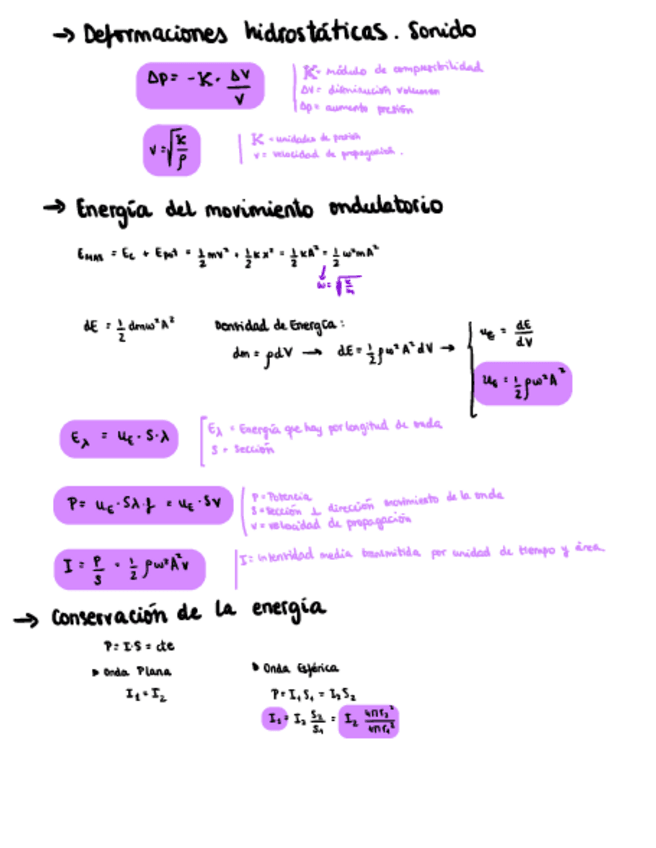 → Deformaciones hidrostáticas. Sonido
Δp = -K · ΔV/V
K = módulo de compresibilidad
ΔV = disminución volumen
Δp = aumento presión
v = √(K/ρ)
K = unidades de presión
v = velocidad de propagación.
→ Energía del movimiento ondulatorio
E_MAS = E_c + E_pot = 1/2 mv² + 1/2 kx² = 1/2 kA² = 1/2 ω²mA²
ω = √(k/m)
dE = 1/2 dmω²A²
Densidad de Energía:
dm = ρdV → dE = 1/2 ρω²A²dV →
u_E = dE/dV
u_E = 1/2 ρω²A²
E_λ = u_E · S · λ
E_λ = Energía que hay por longitud de onda
S = Sección
P = u_E · Sλ · f = u_E · Sv
P = Potencia
S = Sección ⊥ dirección movimiento de la onda
v = velocidad de propagación
I = P/S = 1/2 ρω²A²v
I = intensidad media transmitida por unidad de tiempo y área
→ Conservación de la energía
P = I·S = cte
▸ Onda Plana
I₁ = I₂
▸ Onda Esférica
P = I₁S₁ = I₂S₂
I₁ = I₂ S₂/S₁ = I₂ 4πr₂²/4πr₁²